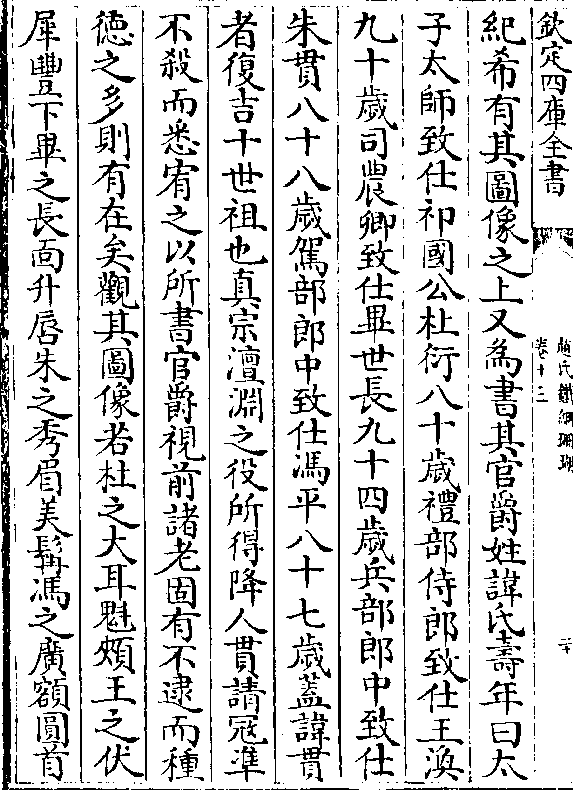 欽定四庫全書
趙氏鐵網珊瑚
卷十三
二十
紀希有其圖像之上又為書其官爵姓諱氏壽年曰太
子太師致仕祁國公杜衍八十歲禮部侍郎致仕王渙
九十歲司農卿致仕畢世長九十四歲兵部郎中致仕
朱貫八十八歲駕部郎中致仕馮平八十七歲蓋諱貫
者復吉十世祖也真宗澶淵之役所得降人貫請冦準
不殺而悉宥之以所書官爵視前諸老固有不逮而種
徳之多則有在矣觀其圖像若杜之大耳魁頰王之伏
犀豐下畢之長面升唇朱之秀眉美髯馮之廣額圓首